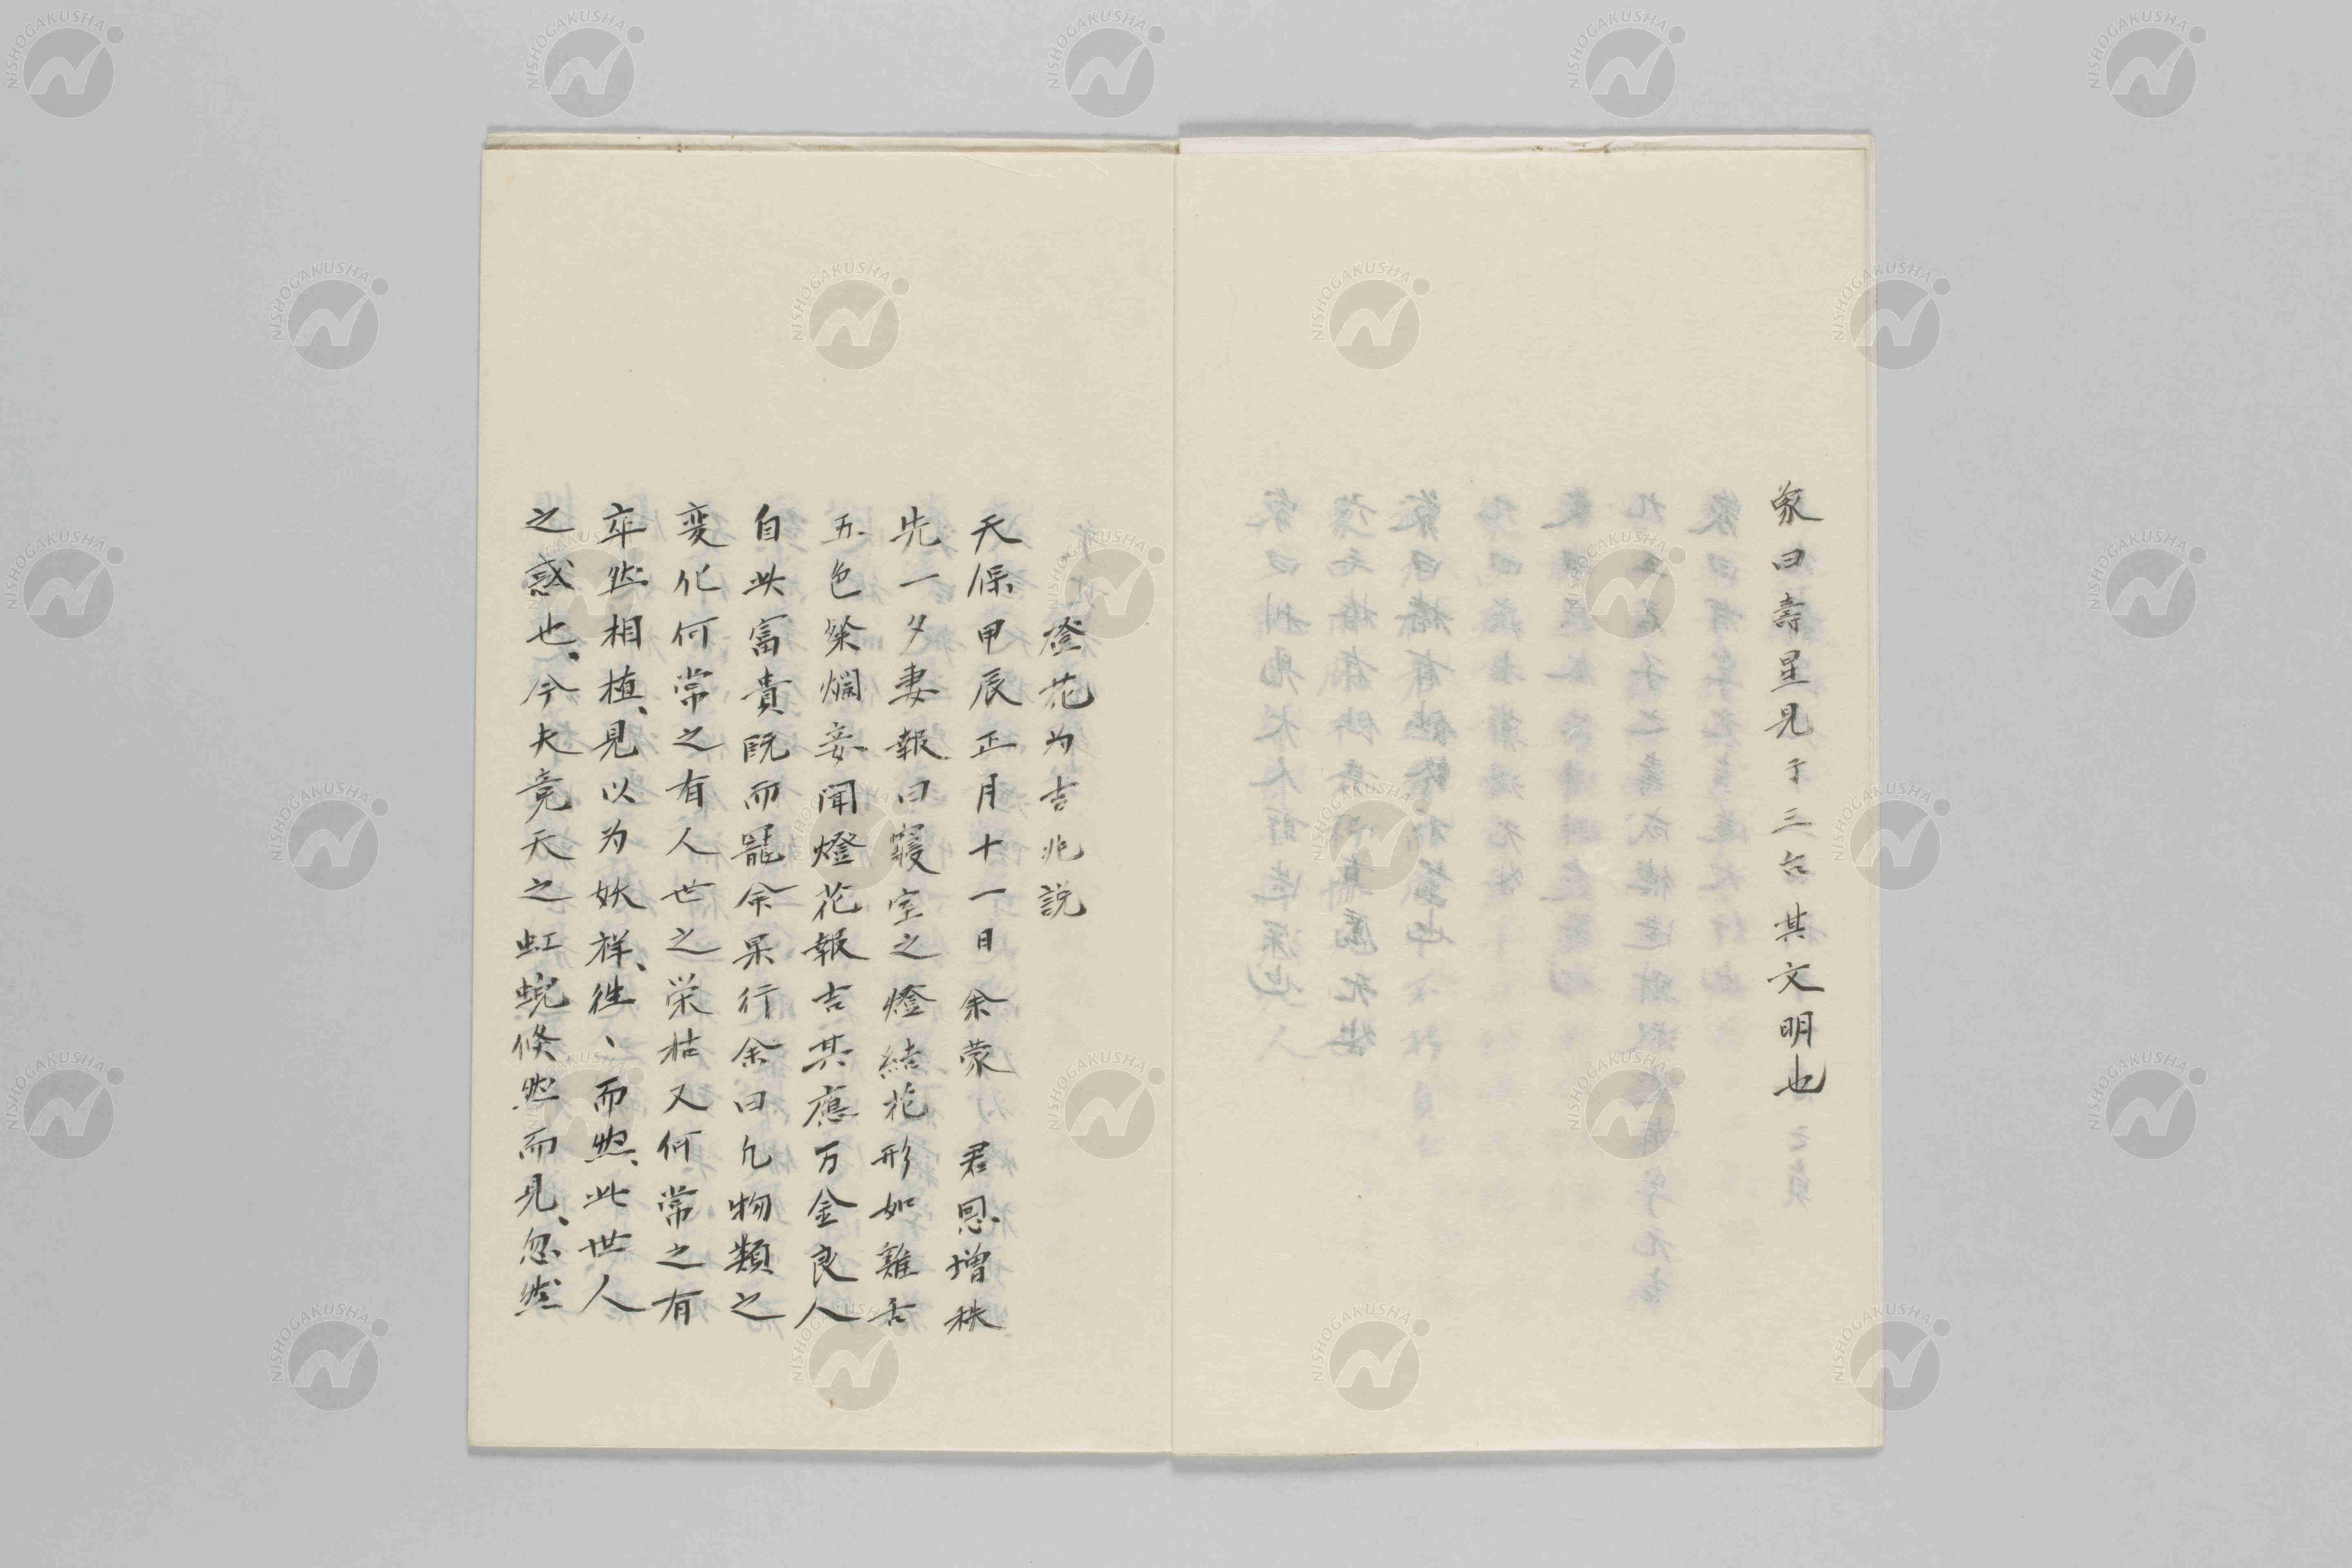 象曰壽星見于三台其文明也
燈花为吉兆説
天保甲辰正月十一日余蒙 君恩增秩
先一夕妻報曰寢室之燈結花形如雞舌
五色粲爛妾聞燈花報吉其應万金良人
自此富貴既而罷余果行余曰凡物類之
変化何常之有人世之栄枯又何常之有
卒然相植、見以为妖祥、往、而然、此世人
之惑也、今夫竟天之虹蜺倏然而見、忽然
NISHOGAKUSHA